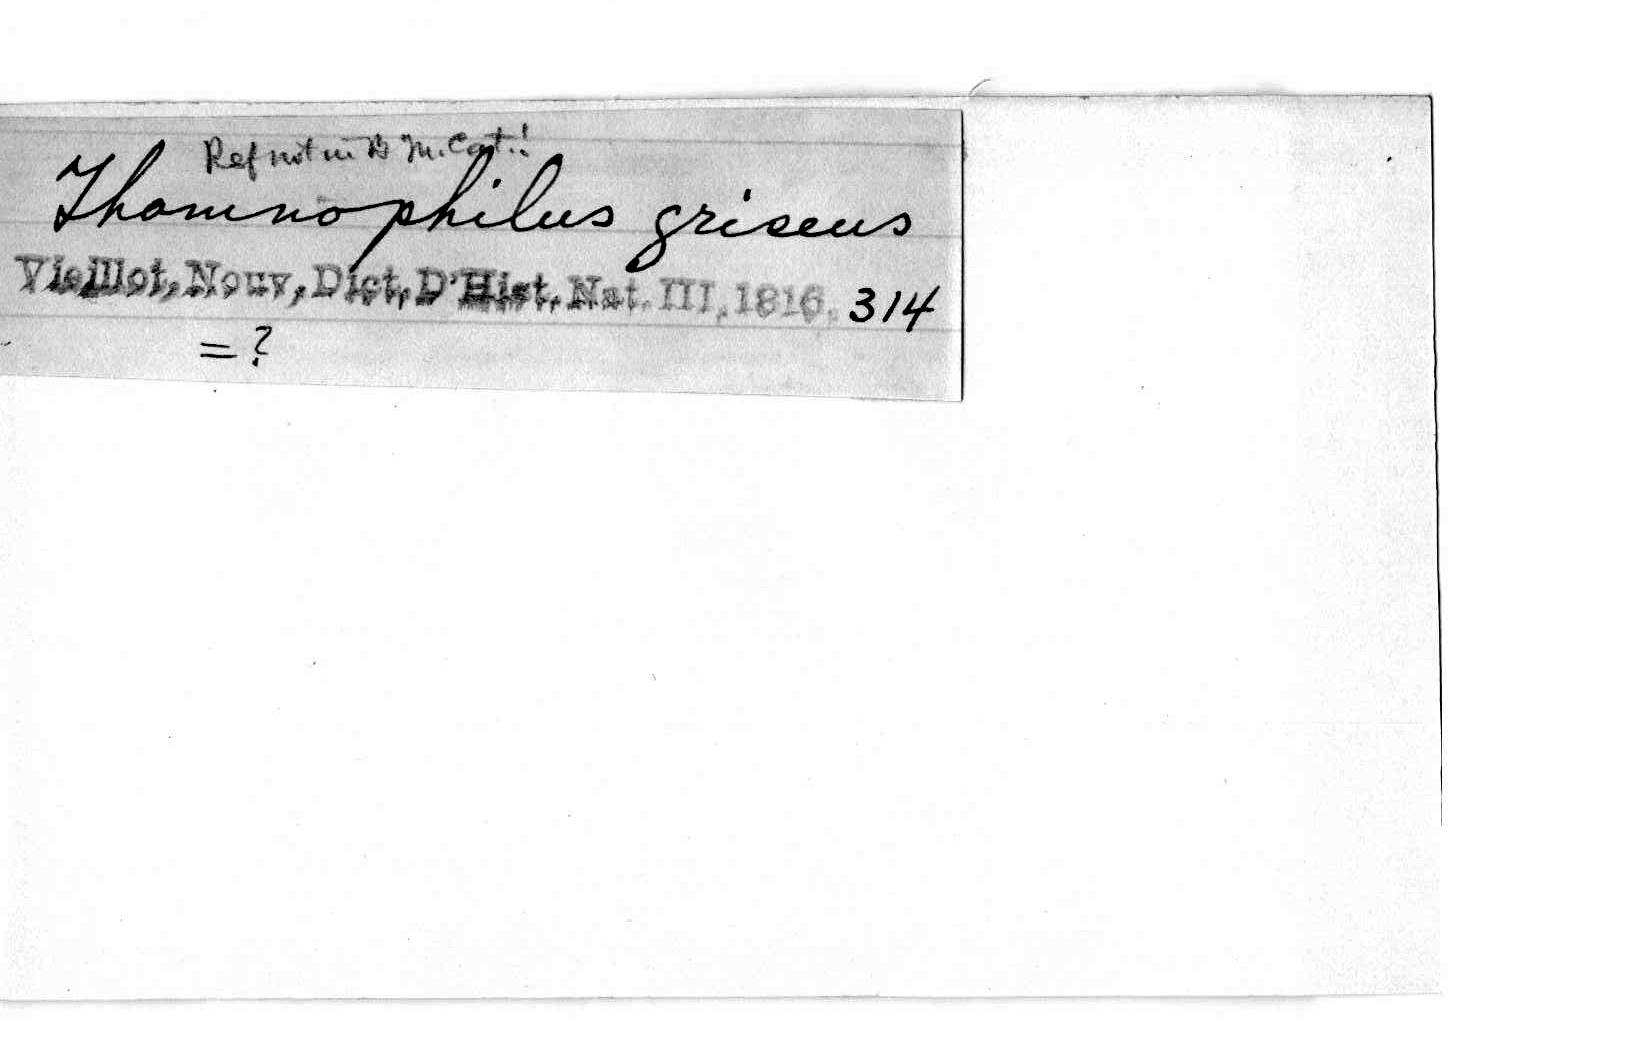 Ref not in B M. Cat.!
Thamnophilus griseus
Vieillot, Nouv, Dict, D'Hist. Nat. III, 1816, 314
= ?